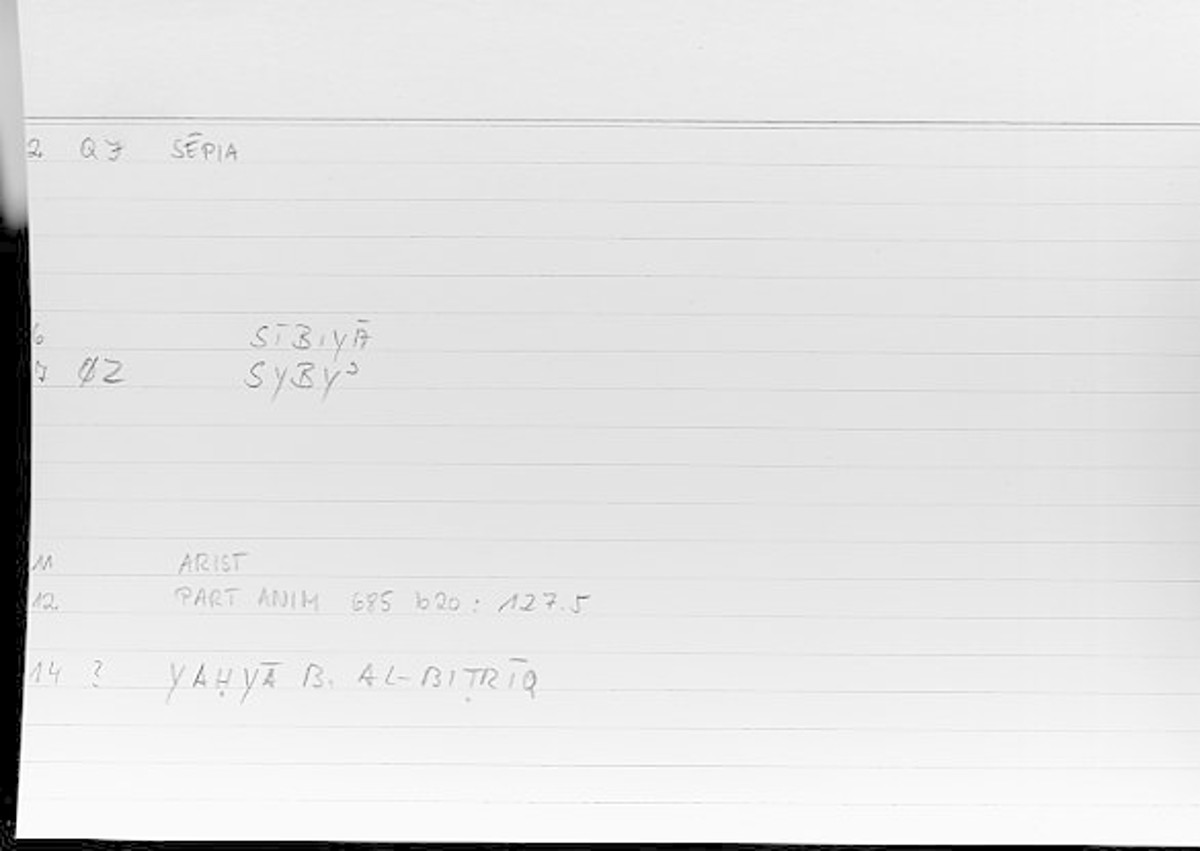 2 Q7 SĒPIA
6 SĪBIYĀ
7 ØZ SYBYʾ
11 ARIST
12 PART ANIM 685 b20 : 127.5
14 ? YAḤYĀ B. AL-BIṬRĪQ